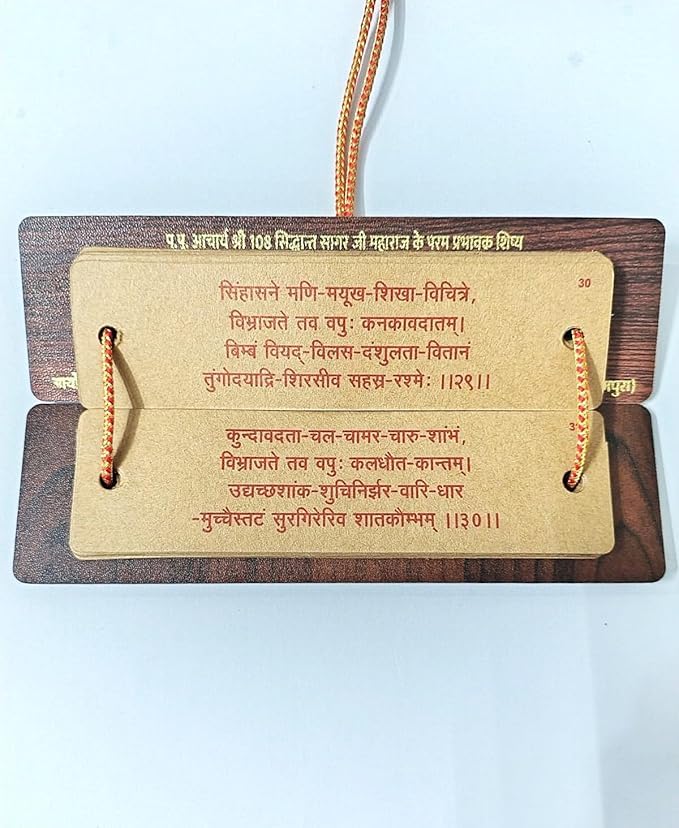 प.पू. आचार्य श्री 108 सिद्धान्त सागर जी महाराज के परम प्रभावक शिष्य
30
सिंहासने मणि-मयूख-शिखा-विचित्रे,
विभ्राजते तव वपुः कनकावदातम्।
बिम्बं वियद्-विलस-दंशुलता-वितानं
तुंगोदयाद्रि-शिरसीव सहस्र-रश्मेः ।।२९।।
कुन्दावदता-चल-चामर-चारु-शांभं,
विभ्राजते तव वपुः कलधौत-कान्तम्।
उद्यच्छशांक-शुचिनिर्झर-वारि-धार
-मुच्चैस्तटं सुरगिरेरिव शातकौम्भम् ।।३०।।